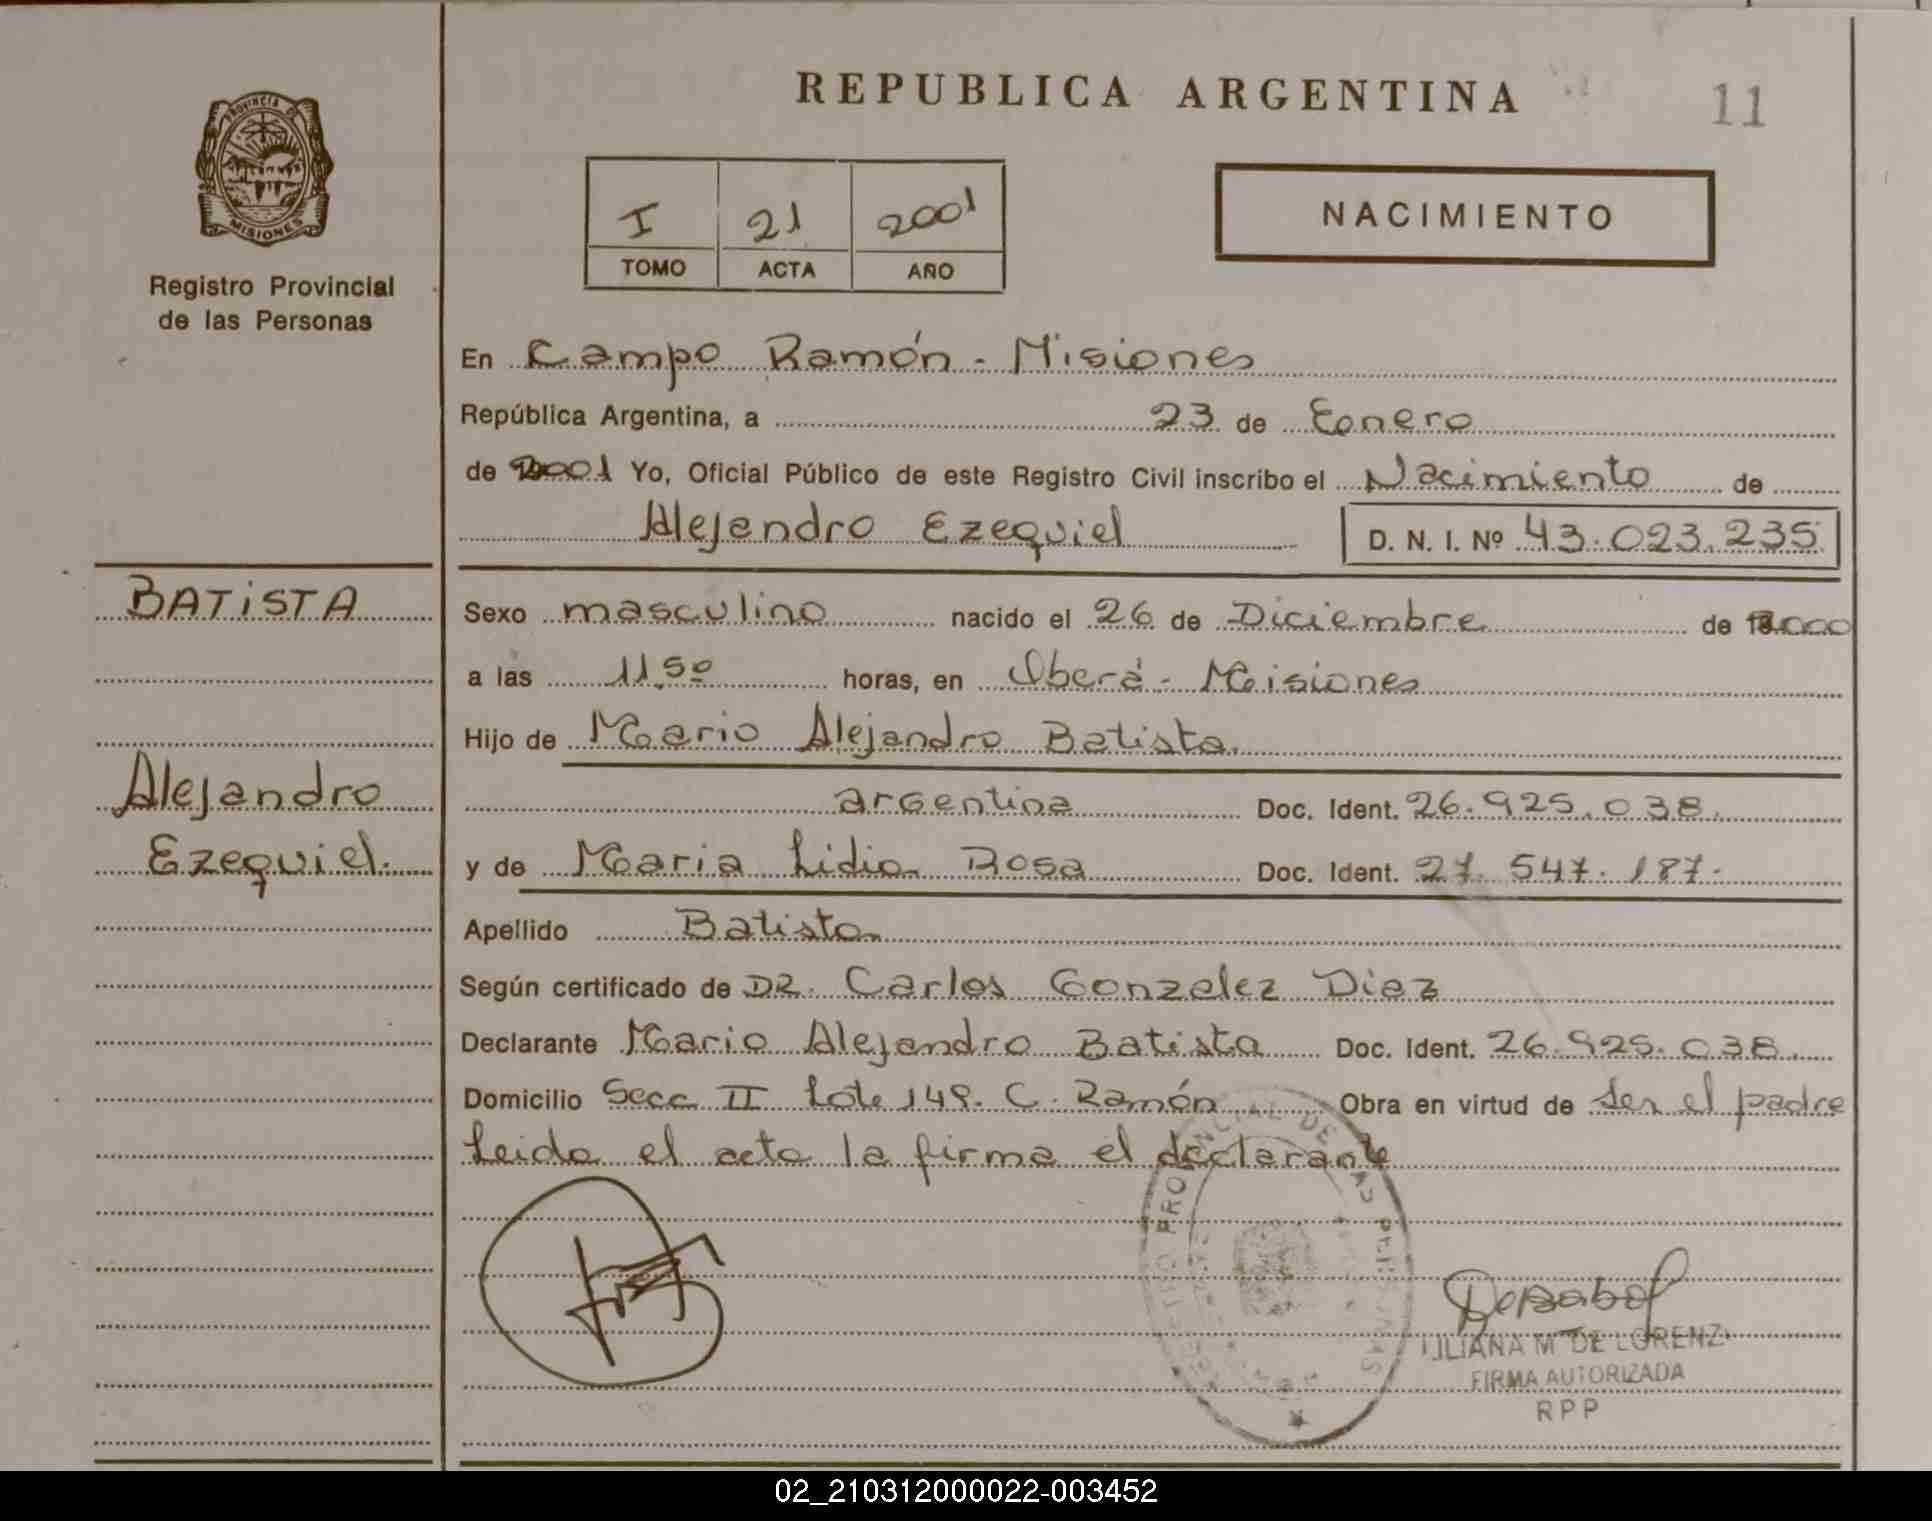 REPUBLICA ARGENTINA
11
PROVINCIA DE
MISIONES
Registro Provincial
de las Personas
I 21 2001
TOMO ACTA AÑO
NACIMIENTO
En Campo Ramón - Misiones
República Argentina, a 23 de Enero
de 2001 Yo, Oficial Público de este Registro Civil inscribo el Nacimiento de
Alejandro Ezequiel D. N. I. Nº 43.023.235
BATISTA
Alejandro
Ezequiel.
Sexo masculino nacido el 26 de Diciembre de 2000
a las 11,50 horas, en Oberá - Misiones
Hijo de Mario Alejandro Batista.
argentina Doc. Ident. 26.925.038.
y de Maria Lidia Rosa Doc. Ident. 27.547.187.
Apellido Batista
Según certificado de DR. Carlos Gonzalez Diaz
Declarante Mario Alejandro Batista Doc. Ident. 26.925.038.
Domicilio Secc II Lote 149. C. Ramón Obra en virtud de ser el padre
Leida el acta la firma el declarante
LILIANA M DE LORENZI
FIRMA AUTORIZADA
RPP
02_210312000022-003452